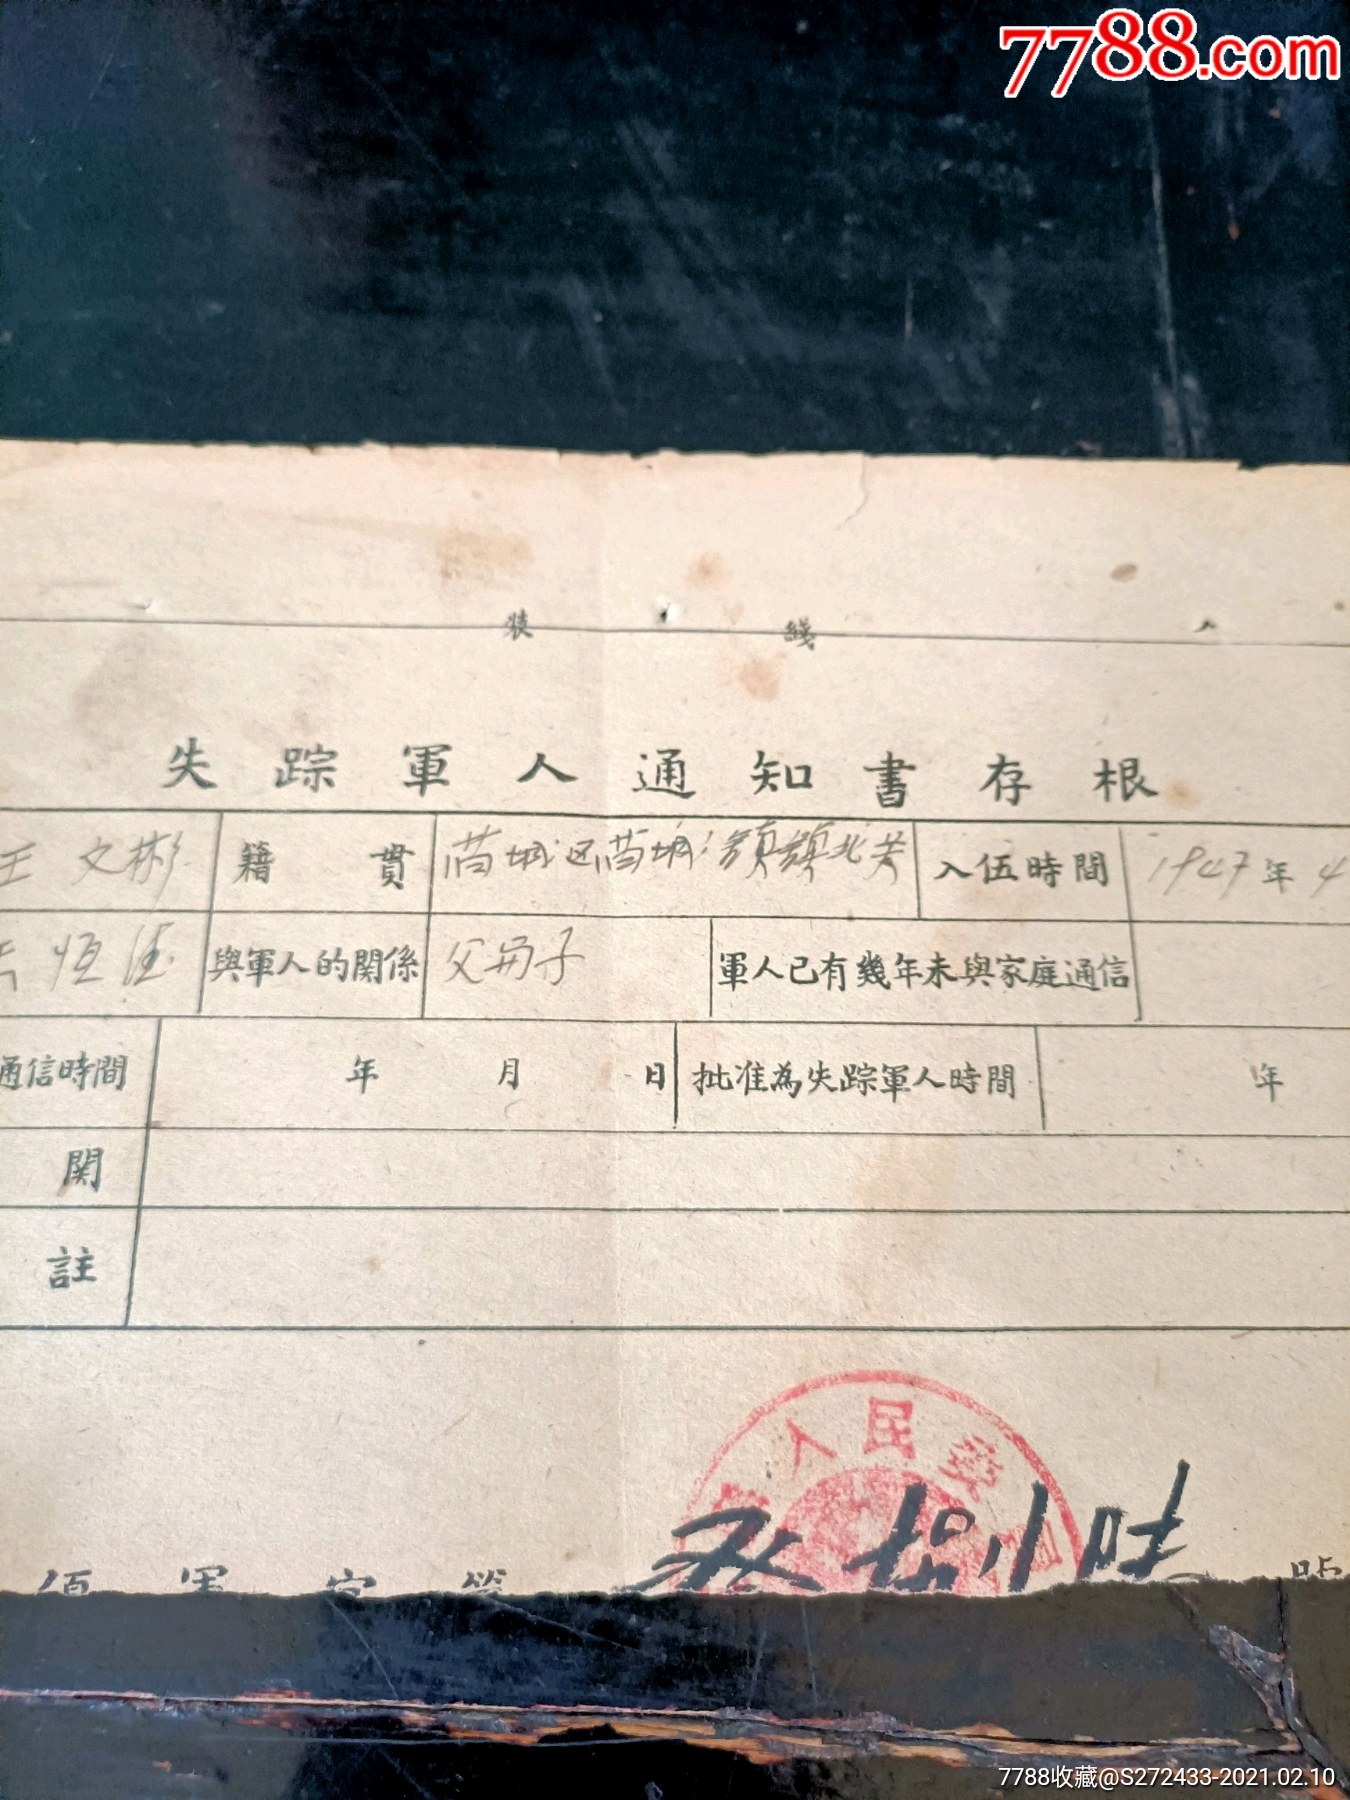 7788.com
装 綫
失踪軍人通知書存根
王文彬 籍貫 入伍時間 1947年4
恒 與軍人的関係 父母子 軍人已有幾年未與家庭通信
通信時間 年 月 日 批准為失踪軍人時間 年
関
註
人民委
7788收藏@S272433-2021.02.10